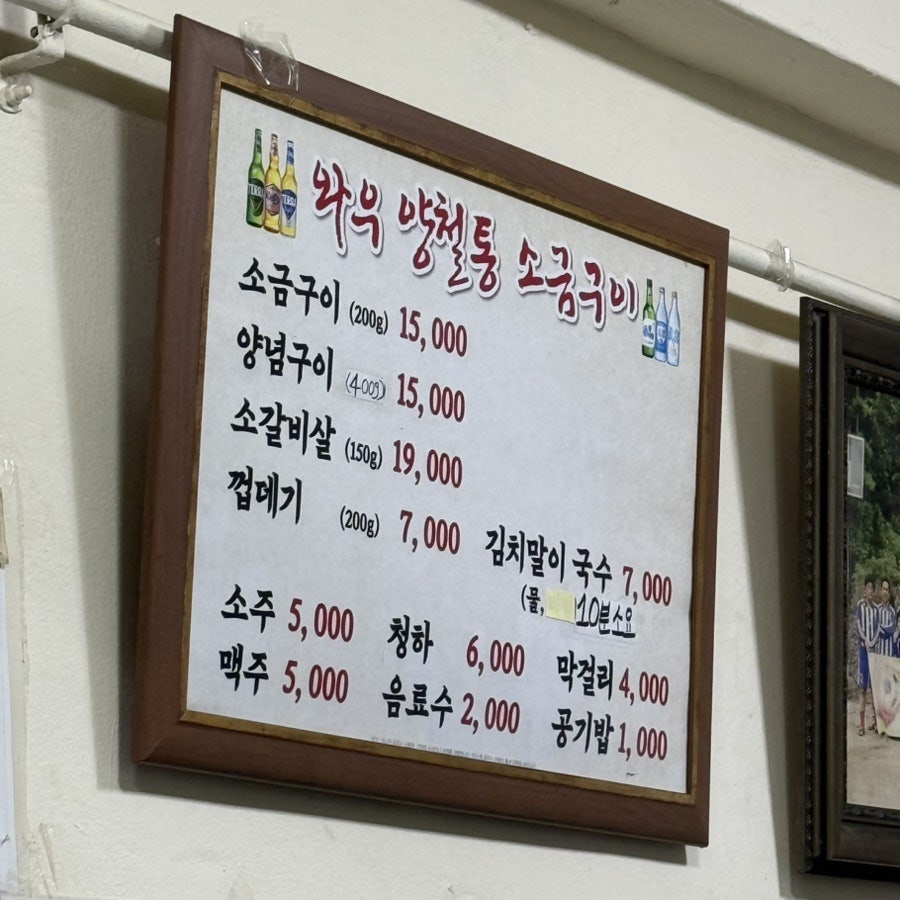 와우 양철통 소금구이
소금구이 (200g) 15,000
양념구이 (400g) 15,000
소갈비살 (150g) 19,000
껍데기 (200g) 7,000
김치말이 국수 7,000
(물, 10분소요
소주 5,000
청하 6,000
막걸리 4,000
맥주 5,000
음료수 2,000
공기밥 1,000
TERRA
TERRA